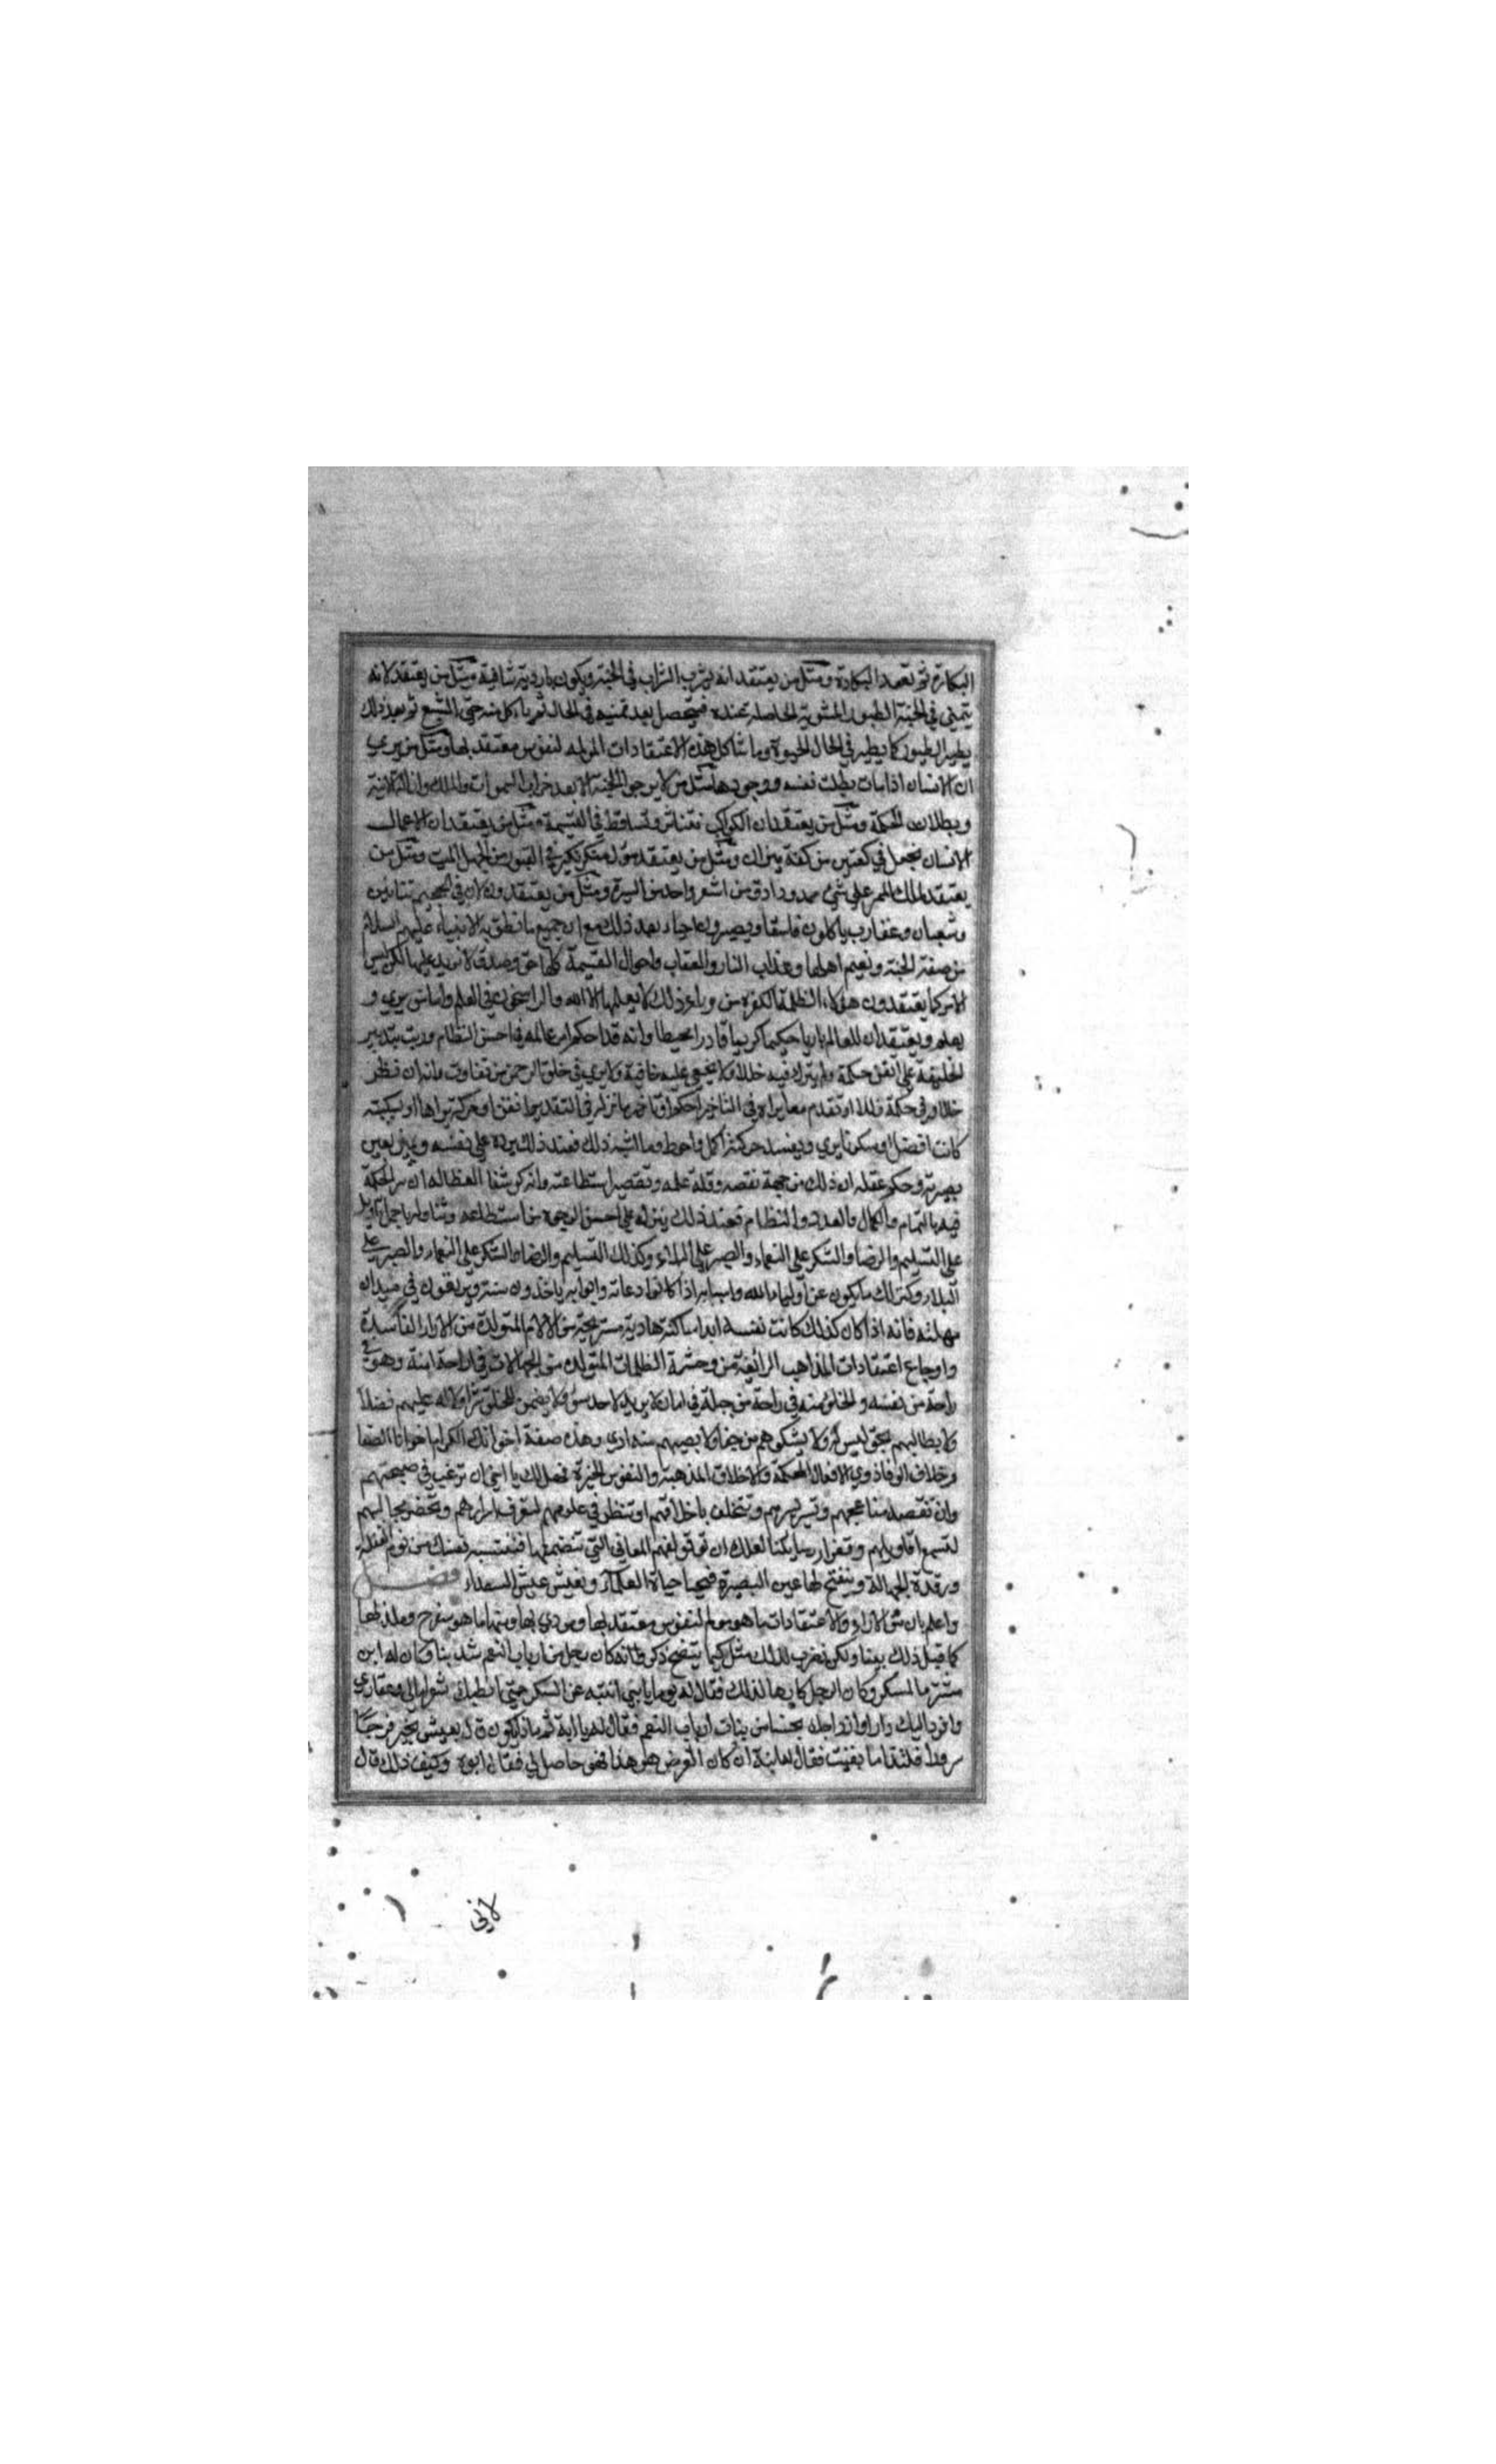 البكارة ثم تعود البكارة ومثل من يعتقد انه يشرب الشراب في الجنة ويكون باردية ساقية ومثل من يعتقد لانه
يتمنى في الجنة الطيور المشوية الحاصلة عنده فيتحصل بعد تمنيه في الحال ثم ياكل منه حتى الشبع ثم بعد ذلك
يطير الطيور كما يطير في الحال الحيوة وما شاكل هذه الاعتقادات المولمه لنفوس معتقد بها ومثل من يرى
ان الانسان اذا مات بطلت نفسه ووجودها مثل من لا يرجو الجنة الا بعد خراب السموات والملك وان
وبطلان الحكمة ومثل من يعتقد ان الكواكب تتناثر وتساقط في القيمة ومثل من يعتقد ان الاعمال
الانسان يجعل في كفتين من كفة ميزان ومثل من يعتقد سؤل منكر نكير في القبور من الميت ومثل من
يعتقد الممر على شئ ممدود ادق من اشعر واحد من ومثل من يعتقدون لان في الجحيم تنانين
وثعبان وعقارب ياكلون فاسقا ويصيرون احياء بعد ذلك مع ان جميع ما نطق به الانبياء عليهم السلام
من صفة الجنة ونعيم اهلها وعذاب النار والعقاب واحوال القيمة كلها حق وصدق لا نريد عليها لكن ليس
الامر كما يعتقدون هولاء الظلمة الكفرة من وراء ذلك لا يعلمها الا الله والراسخون في العلم واناس يرى و
يعلم ويعتقد ان للعالم باريا حكيما كريما قادرا محيطا وانه قد احكم امر عالمه في احسن النظام ورتب بتدبير
الخليقة على اتقن حكمة ولم يترك فيه خللا ولا يخفي عليه خافية ولا يرى في خلق الرحمن من تفاوت وانه ان نظر
كانت افضل او سكونا يرى ويفسد حركة اكمل واحوط وما اشبه ذلك فعند ذلك يرده على نفسه ويتبين بعين
بصيرته وحكم عقله ان ذلك من جهة نقصه وقلة علمه وتقصير استطاعته وانه لو كشف الغطا له ان سر الحكمة
فيه بالتمام والكمال والعدد والنظام فعند ذلك ينزله على احسن الوجوه من استطاعه
على التسليم والرضا والشكر على النعماء والصبر على البلاء وكذلك التسليم والرضا والشكر على النعماء والصبر على
البلاء وكذلك ما يكون عن اولياء الله واسبابه اذا كانوا دعاته وابوابه ياخذون سنته ويتفون في ميدان
مهلته فانه اذا كان كذلك كانت نفسه ابدا ساكنة هادية مستريحة من الالام المتولدة من الاراء الفاسدة
واوجاع اعتقادات المذاهب الرائغة من وحشة الظلمات المتولده من الجهالات في راحة امنة وهو في
راحة من نفسه والخلق منه في راحة من جبلة في امان لا يريد لاحد سوء ولا يضمر للخلق شرا ولا له عليهم فضلا
ولا يطالبهم بحق ليس له ولا يشكوهم من جفاء ولا يصيبهم منه اذى وهذه صفة اخوانك الكرام اخواننا الصفا
وخلاف الوفا ذوي الافعال المحكمة والاخلاق المذهبة والنفوس الخيرة فهل لك يا اخي ان ترغب في صحبتهم
وان تقصد مناهجهم وتسير بسيرهم وتتخلق باخلاقهم او تنظر في علومهم لتعرف اسرارهم وتحضر مجالسهم
لتسمع اقاويلهم وتقرا رسايلنا لعلك ان توفق لفهم المعاني التي تتضمنها فتنتبه نفسك من نوم الغفلة
ورقدة الجهالة وينفتح لها عين البصيرة فتحيا حياة العلماء وتعيش عيش السعداء فصل
واعلم بان من الاراء والاعتقادات ما هو مولم لنفوس معتقد بها ومودي بها ومنها ما هو مفرح وملذ لها
كما قيل ذلك بينا ولكن نضرب لذلك مثل كيما يتضح ذكروا انه كان رجل من ارباب النعم وكان له ابن
مشتهر بالسكر وكان الرجل كارها لذلك فقال له يوما يا بني انتبه عن السكر حتى اعطيك شوارلي وعقاري
وافرد اليك دارا وازواجك بحسناء من بنات ارباب النعم فقال له يا ابة ثم ماذا يكون قال تعيش بخير فرحا
سرورا فلتذا ما بقيت فقال له ابنه ان كان الغرض هو هذا فهو حاصل لي فقال ابوه وكيف ذلك قال
لاني